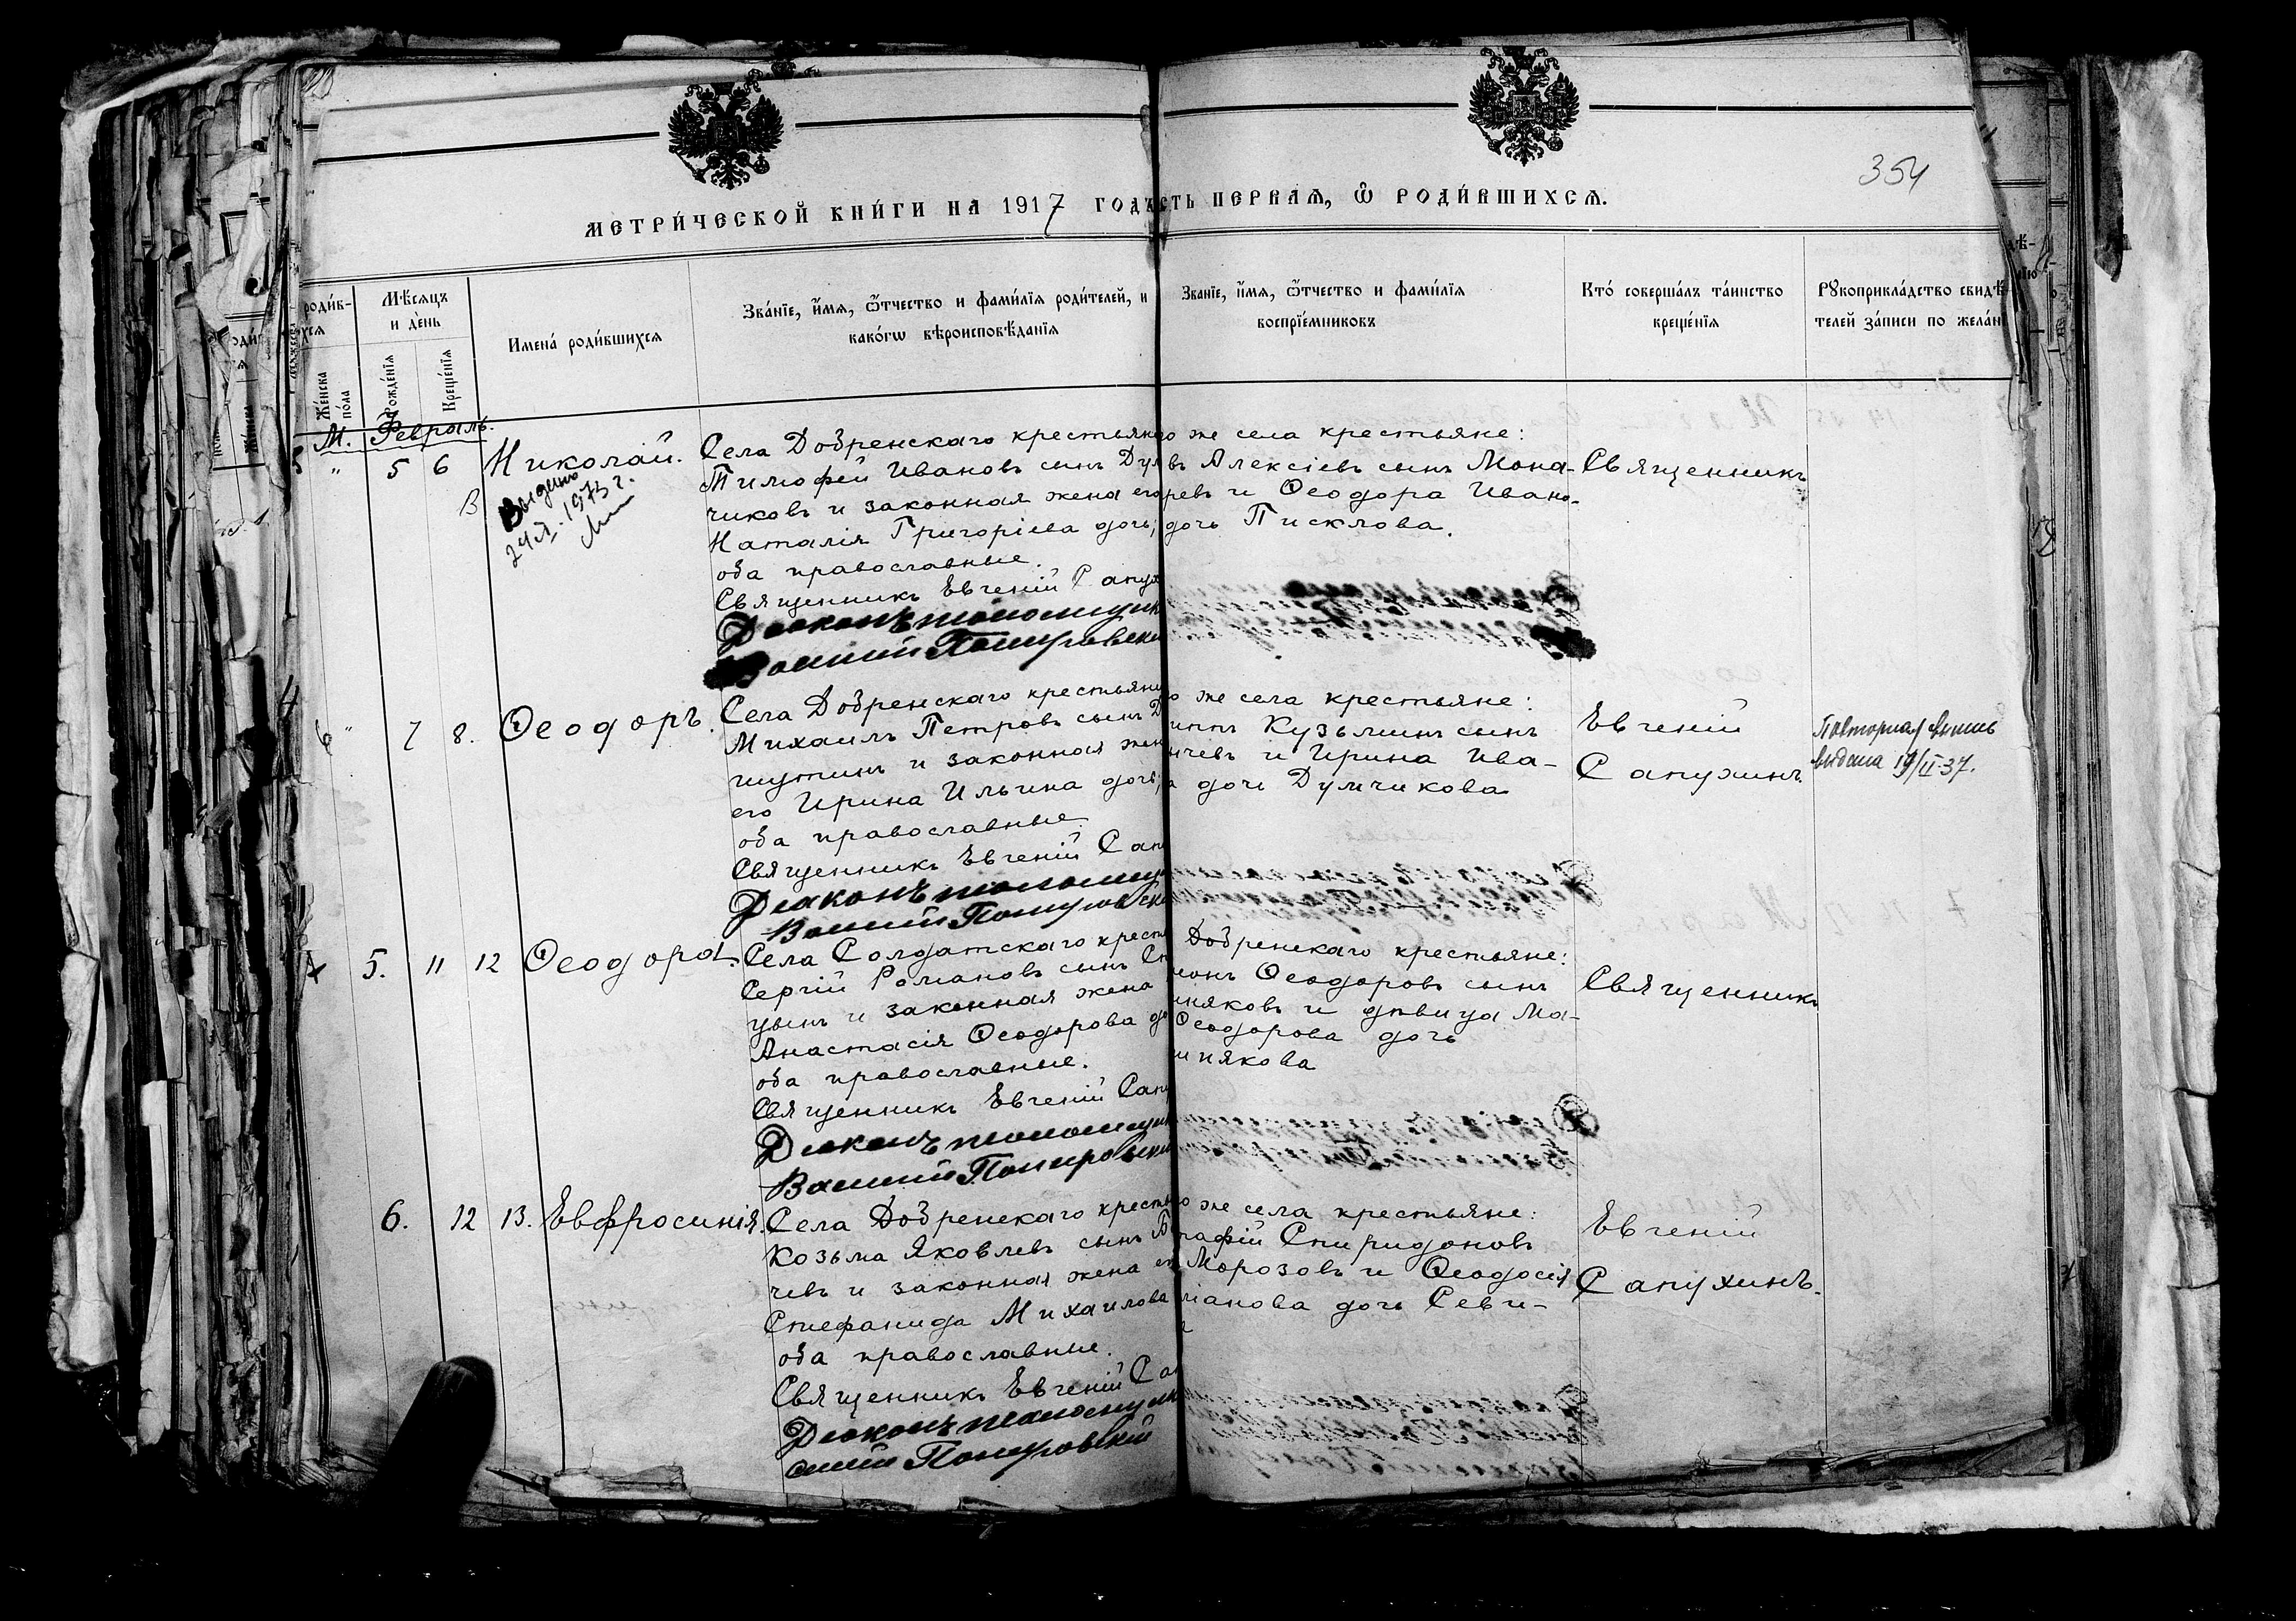 354
МЕТРИ́ЧЕСКОЙ КНИ́ГИ НА 1917 ГОДЪ
СТЬ ПЕРВАѦ, Ѿ РОДИ́ВШИХСѦ.
роди́в-
хсѧ
Же́нска
по́ла
Мѣ́сѧцъ
и де́нь
Рожде́нїѧ
Креще́нїѧ
Имена́ роди́вшихсѧ
Зва́нїе, и́мѧ, ѻ́тчество и фами́лїѧ роди́телей, и
како́гѡ вѣроисповѣ́данїѧ
Зва́нїе, и́мѧ, ѻ́тчество и фами́лїѧ
воспрїе́мниковъ
Кто́ соверша́лъ та́инство
креще́нїѧ
Рꙋкоприкла́дство свидѣ́-
телей за́писи по жела́н
М. Февраль.
" 5 6 Николай.
Выдано
24.II.1973 г.
Села Добренскаго крестьян
Тимофей Ивановъ сынъ Дум
чиковъ и законная жена его
Наталія Григоріева дочь,
оба православные.
Священникъ Евгеній Сапух
Діаконъ псаломщик
о же села крестьяне:
въ Алексіевъ сынъ Мона-
ревъ и Ѳеодора Ивано-
дочь Писклова.
Священникъ
6 " 7 8. Ѳеодоръ.
Села Добренскаго крестьяни
Михаилъ Петровъ сынъ Д
шутинъ и законная жен
его Ирина Ильина дочь;
оба православные.
Священникъ Евгеній Сап
Діаконъ псаломщ
о же села крестьяне:
иппъ Кузьминъ сынъ
ичевъ и Ирина Ива-
а дочь Думчикова
Евгеній
Сапухинъ.
Повторная выпись
выдана 19/II-37.
5. 11 12 Ѳеодора.
Села Солдатскаго кресть
Сергій Романовъ сынъ Сп
цынъ и законная жена
Анастасія Ѳеодорова до
оба православные.
Священникъ Евгеній Сапу
Діаконъ псаломщи
Добренскаго крестьяне:
монъ Ѳеодоровъ сынъ
шняковъ и дѣвица Ма-
Ѳеодорова дочь
шнякова
Священникъ
6. 12 13. Евфросинія.
Села Добренскаго кресть
Козьма Яковлевъ сынъ
чевъ и законная жена е
Стефанида Михаилова
оба православные.
Священникъ Евгеній Са
Діаконъ псаломщик
о же села крестьяне:
рафій Спиридоновъ
Морозовъ и Ѳеодосія
ліанова дочь Севи-
Евгеній
Сапухинъ.